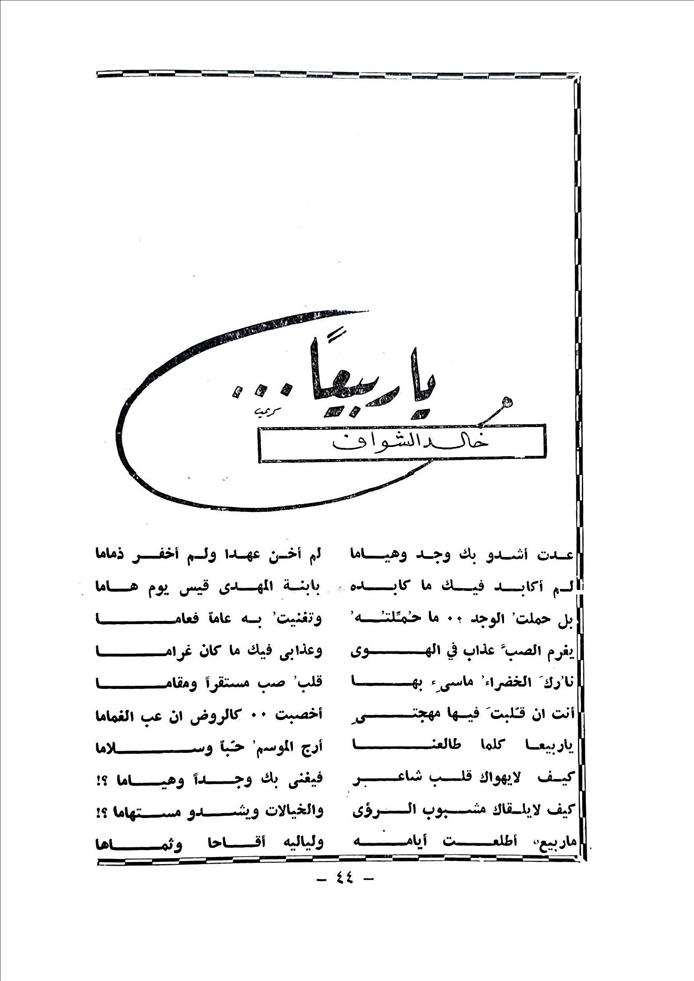 يا ربيعًا ...
كريم
خالد الشواف
عدت أشدو بك وجد وهياما لم أخن عهدا ولم أخفر ذماما
لم أكابد فيك ما كابده بابنة المهدى قيس يوم هاما
بل حملت' الوجد ٠٠ ما حُمّلتُه' وتغنيت' به عاماً فعاما
يغرم الصبّ عذاب في الهوى وعذابى فيك ما كان غراما
نارك الخضراء' ماسىء بها قلب' صب مستقراً ومقاما
أنت ان قلبتَ فيها مهجتي أخصبت ٠٠ كالروض ان عب الغماما
ياربيعا كلما طالعنا أرج الموسم' حبّاً وسلاما
كيف لايهواك قلب شاعر فيغنى بك وجداً وهياما ؟!
كيف لايلقاك مشبوب الرؤى والخيالات ويشدو مستهاما ؟!
ماربيع، أطلعت أيامه ولياليه أقاحا وثماها
– ٤٤ –